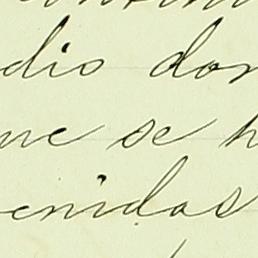 dio don
ue se h
enidas